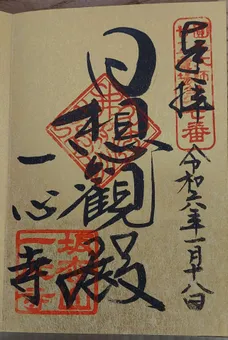 奉拝
令和六年一月十八日
日想観殿
一心寺